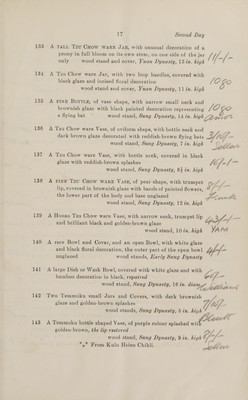 17
Second Day
133 A TALL TZU CHOW WARE JAR, with unusual decoration of a
peony in full bloom on its own stem, on one side of the jar
only wood stand and cover, Yuan Dynasty, 12 in. high
11/-/-
134 A Tzu Chow ware Jar, with two loop handles, covered with
black glaze and incised floral decoration
wood stand and cover, Yuan Dynasty, 11 in. high
10 gs
135 A FINE BOTTLE, of vase shape, with narrow small neck and
brownish glaze with black painted decoration representing
a flying bat wood stand, Sung Dynasty, 14 in. high
10 gs
136 A Tzu Chow ware Vase, of oviform shape, with bottle neck and
dark brown glaze decorated with reddish brown flying bats
wood stand, Sung Dynasty, 7 in. high
137 A Tzu Chow ware Vase, with bottle neck, covered in black
glaze with reddish-brown splashes
wood stand, Sung Dynasty, 8½ in. high
138 A FINE TZU CHOW WARE VASE, of pear-shape, with trumpet
lip, covered in brownish glaze with bands of painted flowers,
the lower part of the body and base unglazed
wood stand, Sung Dynasty, 12 in. high
139 A Honan Tzu Chow ware Vase, with narrow neck, trumpet lip
and brilliant black and golden-brown glaze
wood stand, 10 in. high
140 A rare Bowl and Cover, and an open Bowl, with white glaze
and black floral decoration, the outer part of the open bowl
unglazed wood stands, Early Sung Dynasty
141 A large Dish or Wash Bowl, covered with white glaze and with
bamboo decoration in black, repaired
wood stand, Sung Dynasty, 16 in. diam.
142 Two Temmoku small Jars and Covers, with dark brownish
glaze and golden-brown splashes
wood stands, Sung Dynasty, 5 in. high
143 A Temmoku bottle shaped Vase, of purple colour splashed with
golden-brown, the lip restored
wood stand, Sung Dynasty, 9 in. high
*⁎* From Kulo Hsien Chihli